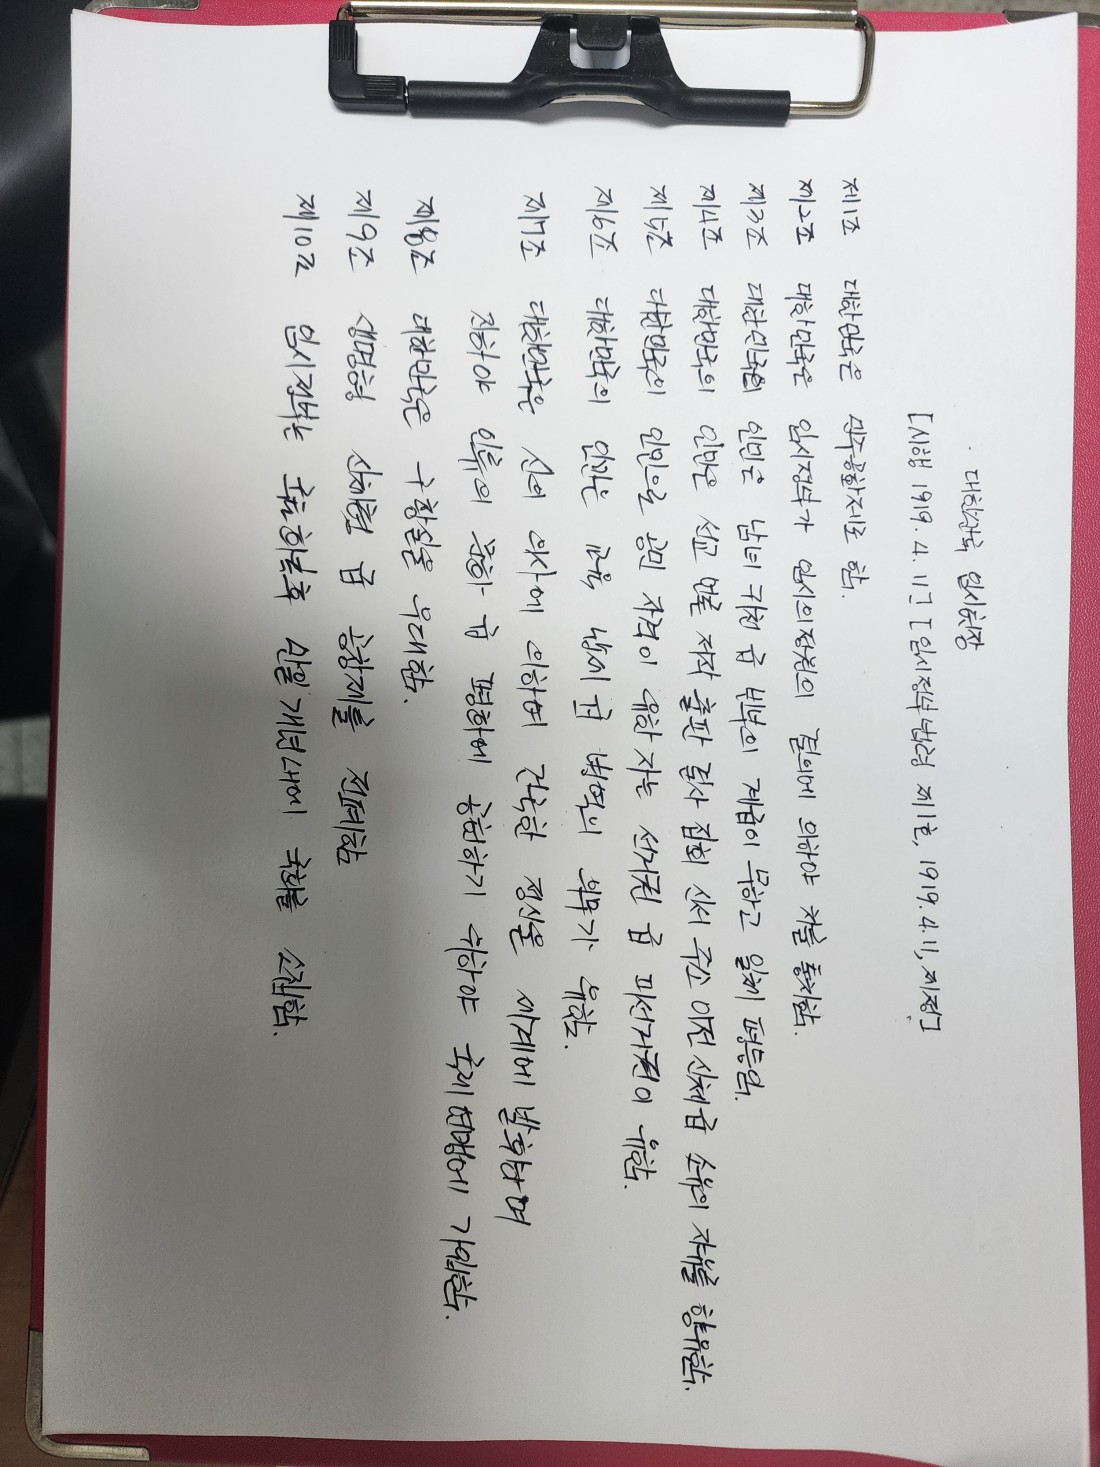 대한민국 임시헌장
[시행 1919. 4. 11.] [임시정부법령 제1호, 1919. 4. 11., 제정]
제1조 대한민국은 민주공화제로 함.
제2조 대한민국은 임시정부가 임시의정원의 결의에 의하야 차를 통치함.
제3조 대한민국의 인민은 남녀 귀천 급 빈부의 계급이 무하고 일체 평등임.
제4조 대한민국의 인민은 신교 언론 저작 출판 결사 집회 신서 주소 이전 신체 급 소유의 자유를 향유함.
제5조 대한민국의 인민으로 공민 자격이 유한 자는 선거권 급 피선거권이 유함.
제6조 대한민국의 인민은 교육 납세 급 병역의 의무가 유함.
제7조 대한민국은 신의 의사에 의하여 건국한 정신을 세계에 발휘하며
진하야 인류의 문화 급 평화에 공헌하기 위하야 국제연맹에 가입함.
제8조 대한민국은 구황실을 우대함.
제9조 생명형 신체형 급 공창제를 전폐함
제10조 임시정부는 국토회복후 만일개년내에 국회를 소집함.